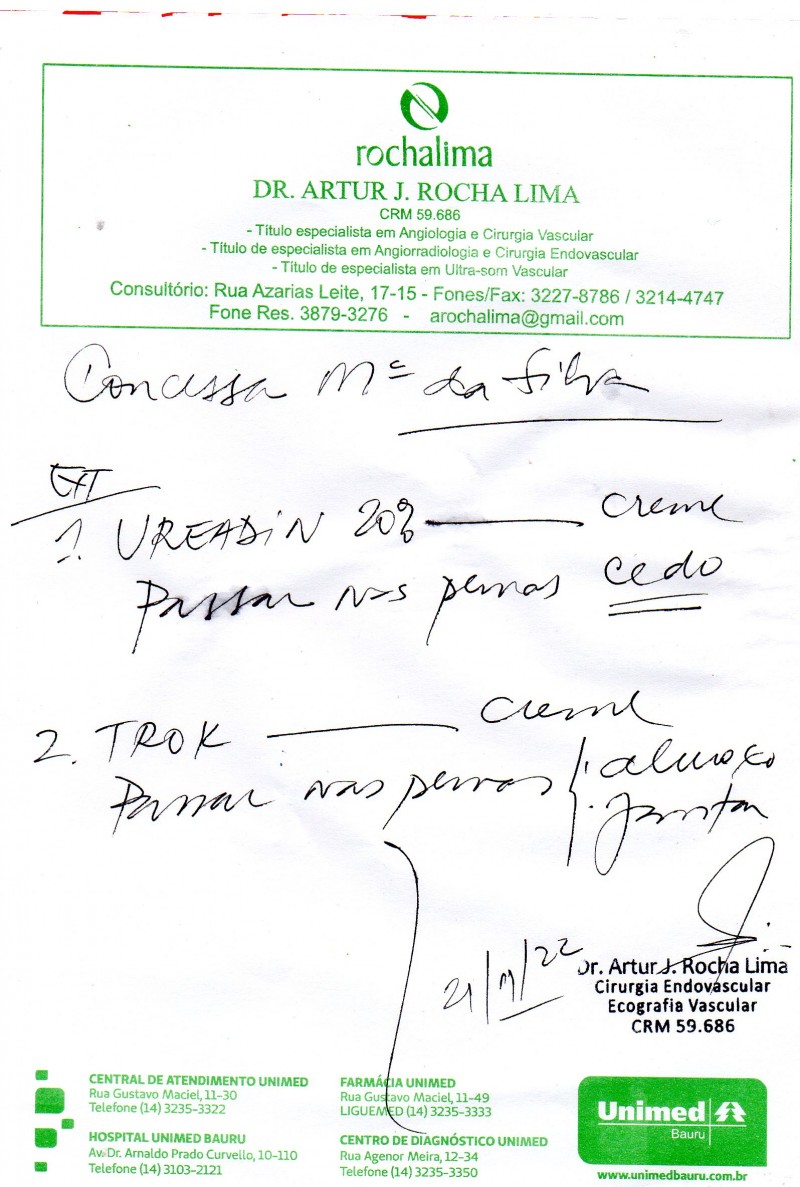 rochalima
DR. ARTUR J. ROCHA LIMA
CRM 59.686
- Título especialista em Angiologia e Cirurgia Vascular
- Título de especialista em Angiorradiologia e Cirurgia Endovascular
- Título de especialista em Ultra-som Vascular
Consultório: Rua Azarias Leite, 17-15 - Fones/Fax: 3227-8786 / 3214-4747
Fone Res. 3879-3276 - arochalima@gmail.com
Concessa Mª da Silva
EXT
1. UREADIN 20% creme
Passar nas pernas cedo
2. TROK creme
Passar nas pernas : almoço
: jantar
21/11/22
Dr. Artur J. Rocha Lima
Cirurgia Endovascular
Ecografia Vascular
CRM 59.686
CENTRAL DE ATENDIMENTO UNIMED
Rua Gustavo Maciel, 11-30
Telefone (14) 3235-3322
HOSPITAL UNIMED BAURU
Av. Dr. Arnaldo Prado Curvello, 10-110
Telefone (14) 3103-2121
FARMÁCIA UNIMED
Rua Gustavo Maciel, 11-49
LIGUEMED (14) 3235-3333
CENTRO DE DIAGNÓSTICO UNIMED
Rua Agenor Meira, 12-34
Telefone (14) 3235-3350
Unimed
Bauru
www.unimedbauru.com.br